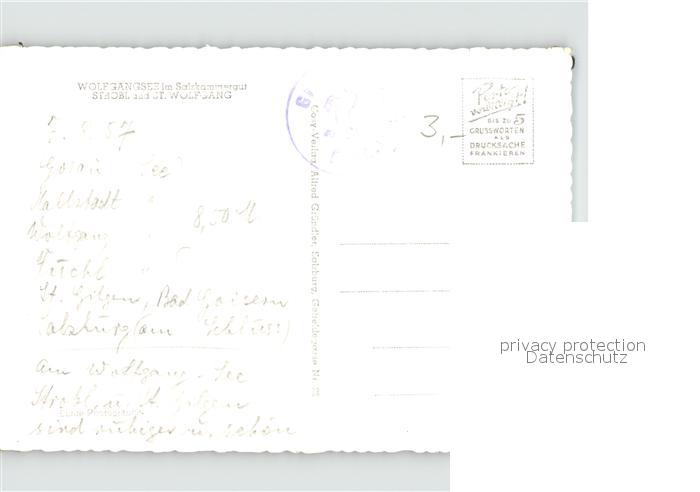 WOLFGANGSEE im Salzkammergut
STROBL und ST. WOLFGANG
7.9.57
Gosau See
Hallstadt "
Wolfgang "
8,50 M
Fuschl "
St. Gilgen, Bad Goisern
Salzburg (am Schluss)
am Wolfgang-See
Strobl u. St. Gilgen
sind ruhiger u. schön
Echte Photographie
Cosy-Verlag Alfred Gründler, Salzburg,
3,-
Porto
BIS ZU 5
GRUSSWORTEN
ALS
DRUCKSACHE
FRANKIEREN
privacy protection
Datenschutz